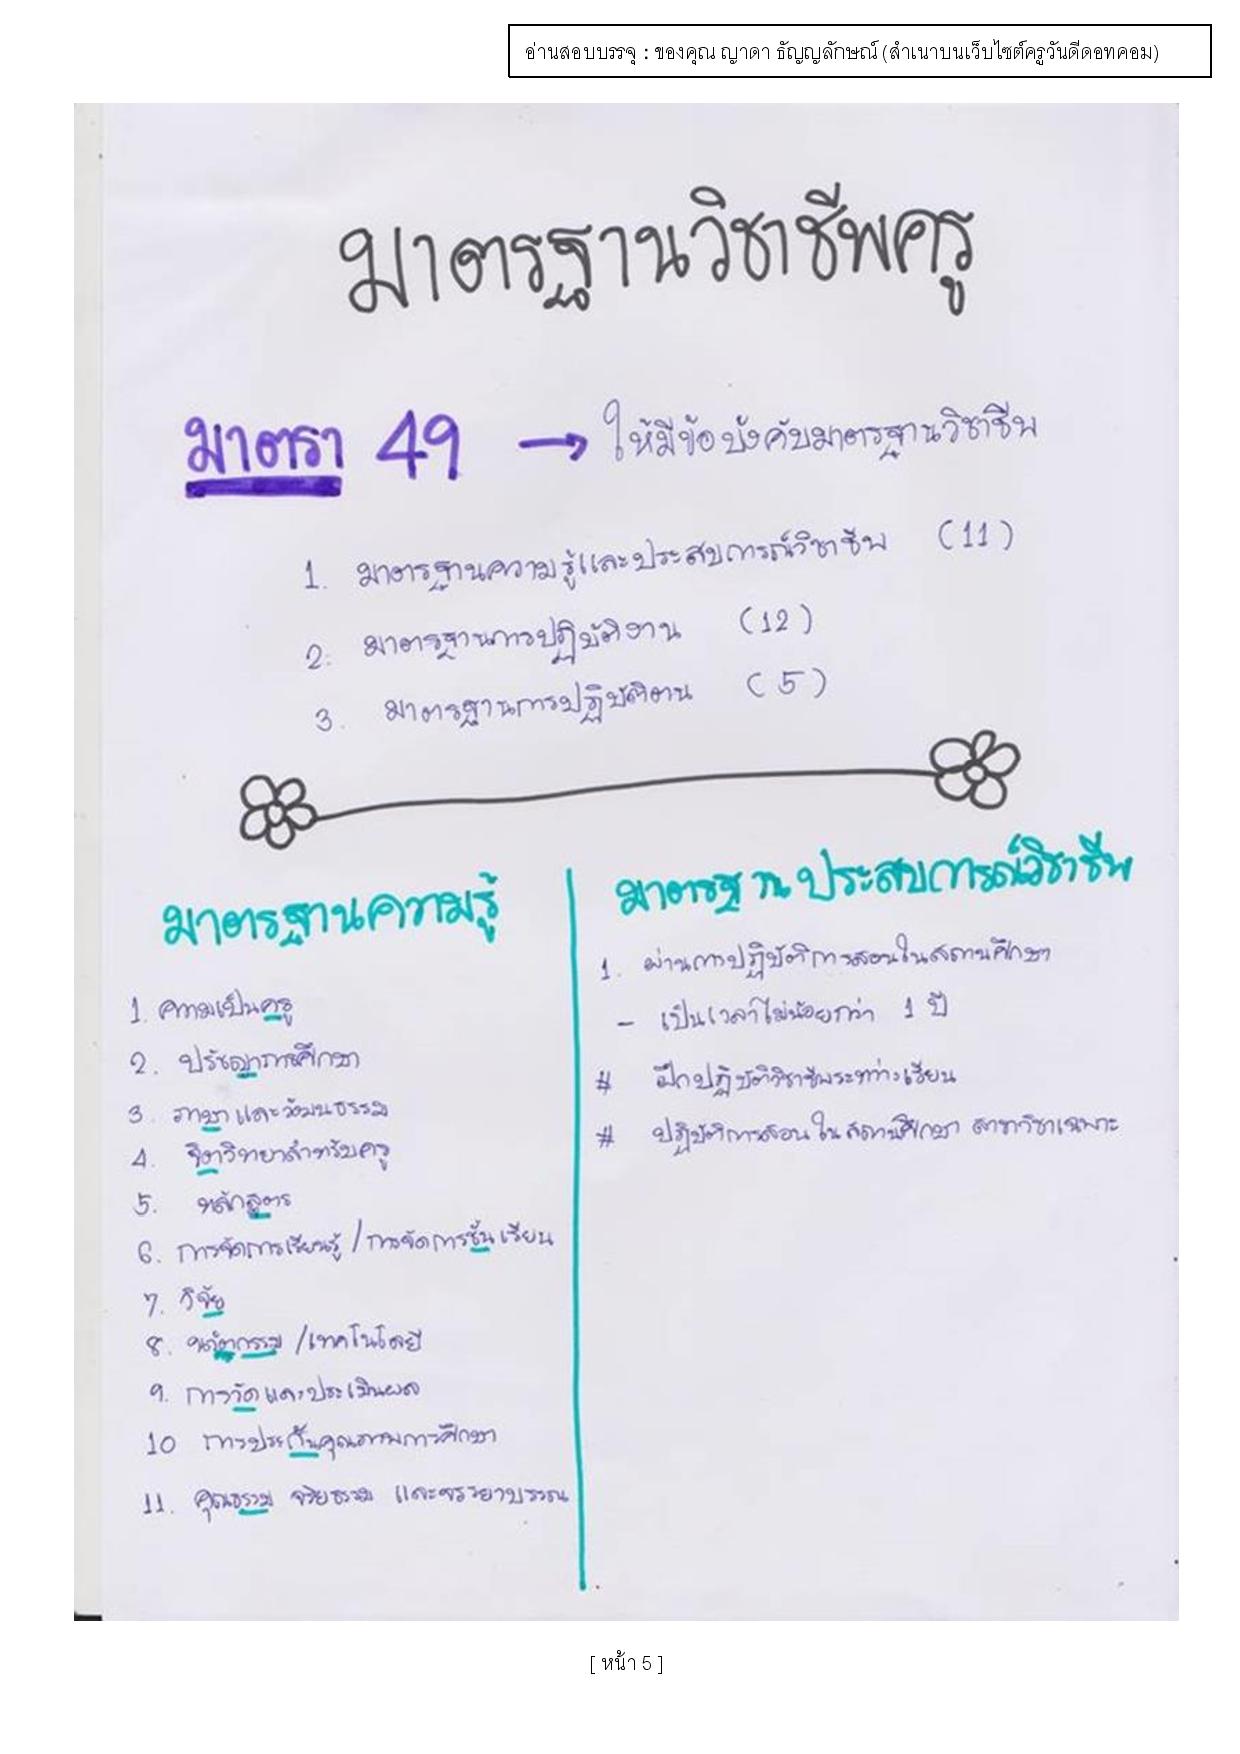 อ่านสอบบรรจุ : ของคุณ ญาดา ธัญญลักษณ์ (สำเนาบนเว็บไซต์ครูวันดีดอทคอม)
มาตรฐานวิชาชีพครู
มาตรา 49 → ให้มีข้อบังคับมาตรฐานวิชาชีพ
1. มาตรฐานความรู้และประสบการณ์วิชาชีพ (11)
2. มาตรฐานการปฏิบัติงาน (12)
3. มาตรฐานการปฏิบัติตน (5)
มาตรฐานความรู้
1. ความเป็นครู
2. ปรัชญาการศึกษา
3. ภาษาและวัฒนธรรม
4. จิตวิทยาสำหรับครู
5. หลักสูตร
6. การจัดการเรียนรู้ / การจัดการชั้นเรียน
7. วิจัย
8. นวัตกรรม / เทคโนโลยี
9. การวัดและประเมินผล
10 การประกันคุณภาพการศึกษา
11. คุณธรรม จริยธรรม และจรรยาบรรณ
มาตรฐานประสบการณ์วิชาชีพ
1. ผ่านการปฏิบัติการสอนในสถานศึกษา
- เป็นเวลาไม่น้อยกว่า 1 ปี
# ฝึกปฏิบัติวิชาชีพระหว่างเรียน
# ปฏิบัติการสอนในสถานศึกษา สาขาวิชาเฉพาะ
[ หน้า 5 ]